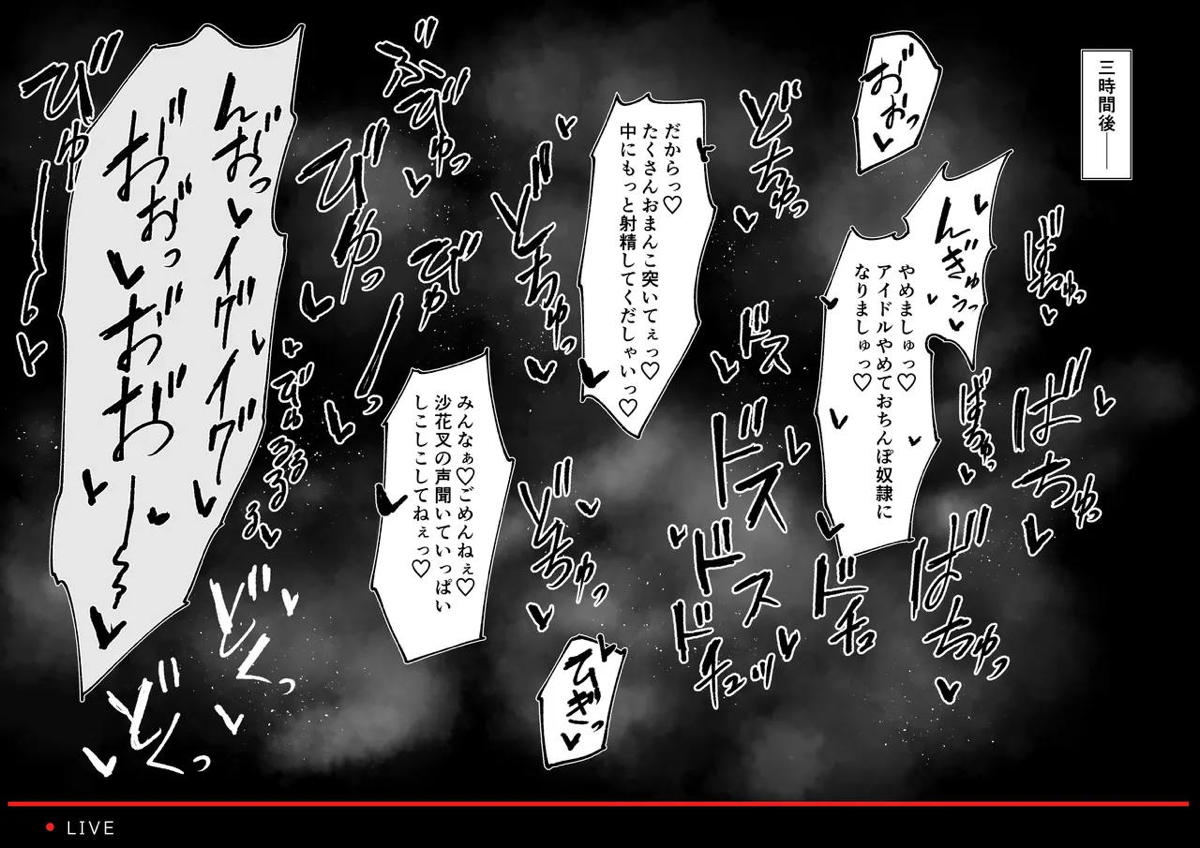 三時間後――
おおっ♥
んぎゅうっ♥
やめましゅっ♡
アイドルやめておちんぽ奴隷に
なりましゅっ♡
ばちゅっ♥
ばちゅっ♥
ばちゅっ♥
ばちゅっ♥
ドチュ
どちゅっ♥
ドス
ドス
ドス
ドチュッ♥
だからっ♡
たくさんおまんこ突いてぇっ♡
中にもっと射精してくだしゃいっ♡
どちゅっ♥
どちゅっ♥
ひぎっ♥
みんなぁ♡ごめんねぇ♡
沙花叉の声聞いていっぱい
しこしこしてねぇっ♡
ぶびゅっ♥
びゅーっ♥
びゅっ♥
びゅるるる♥
んおっ♥イグイグ♥
おおっ♥おおお〜〜♥
びゅ〜〜♥
どくっ♥
どくっ♥
LIVE